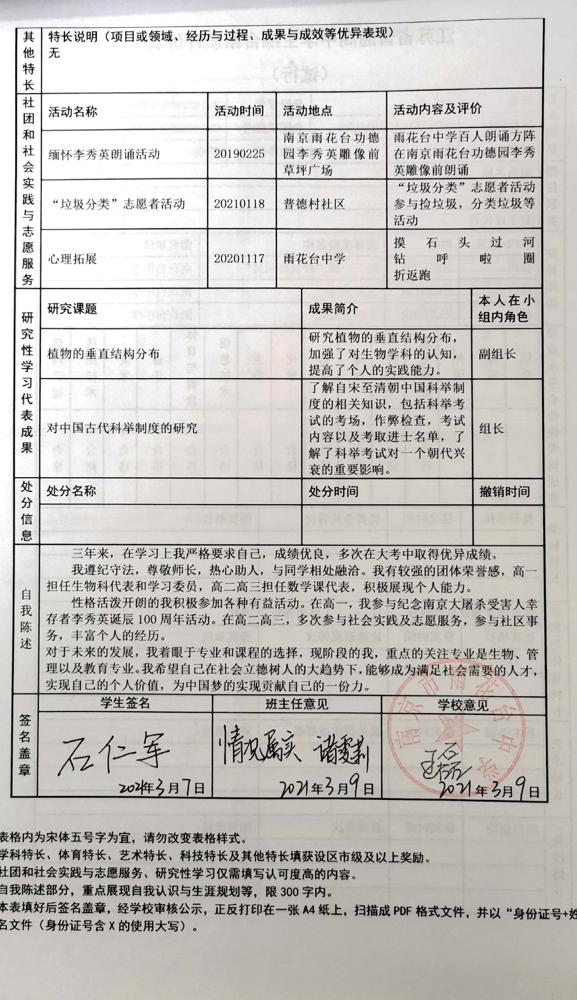 其他特长
特长说明（项目或领域、经历与过程、成果与成效等优异表现）
无
社团和社会实践与志愿服务
活动名称 活动时间 活动地点 活动内容及评价
缅怀李秀英朗诵活动 20190225
南京雨花台功德
园李秀英雕像前
草坪广场
雨花台中学百人朗诵方阵
在南京雨花台功德园李秀
英雕像前朗诵
“垃圾分类”志愿者活动 20210118 普德村社区
“垃圾分类”志愿者活动
参与捡垃圾，分类垃圾等
活动
心理拓展 20201117 雨花台中学
摸石头过河
钻呼啦圈
折返跑
研究性学习代表成果
研究课题 成果简介
本人在小
组内角色
植物的垂直结构分布
研究植物的垂直结构分布，
加强了对生物学科的认知，
提高了个人的实践能力。
副组长
对中国古代科举制度的研究
了解自宋至清朝中国科举制
度的相关知识，包括科举考
试的考场，作弊检查，考试
内容以及考取进士名单，了
解了科举考试对一个朝代兴
衰的重要影响。
组长
处分信息
处分名称 处分时间 撤销时间
自我陈述
三年来，在学习上我严格要求自己，成绩优良，多次在大考中取得优异成绩。
我遵纪守法，尊敬师长，热心助人，与同学相处融洽。我有较强的团体荣誉感，高一
担任生物科代表和学习委员，高二高三担任数学课代表，积极展现个人能力。
性格活泼开朗的我积极参加各种有益活动。在高一，我参与纪念南京大屠杀受害人幸
存者李秀英诞辰100周年活动。在高二高三，多次参与社会实践及志愿服务，参与社区事
务，丰富个人的经历。
对于未来的发展，我着眼于专业和课程的选择，现阶段的我，重点的关注专业是生物、管
理以及教育专业。我希望自己在社会立德树人的大趋势下，能够成为满足社会需要的人才，
实现自己的个人价值，为中国梦的实现贡献自己的一份力。
签名盖章
学生签名 班主任意见 学校意见
石仁军
情况属实
2021年3月7日 2021年3月9日 2021年3月9日
南京市雨花台中学
表格内为宋体五号字为宜，请勿改变表格样式。
学科特长、体育特长、艺术特长、科技特长及其他特长填获设区市级及以上奖励。
社团和社会实践与志愿服务、研究性学习仅需填写认可度高的内容。
自我陈述部分，重点展现自我认识与生涯规划等，限300字内。
本表填好后签名盖章，经学校审核公示，正反打印在一张A4纸上，扫描成PDF格式文件，并以“身份证号+姓
名文件（身份证号含X的使用大写）。